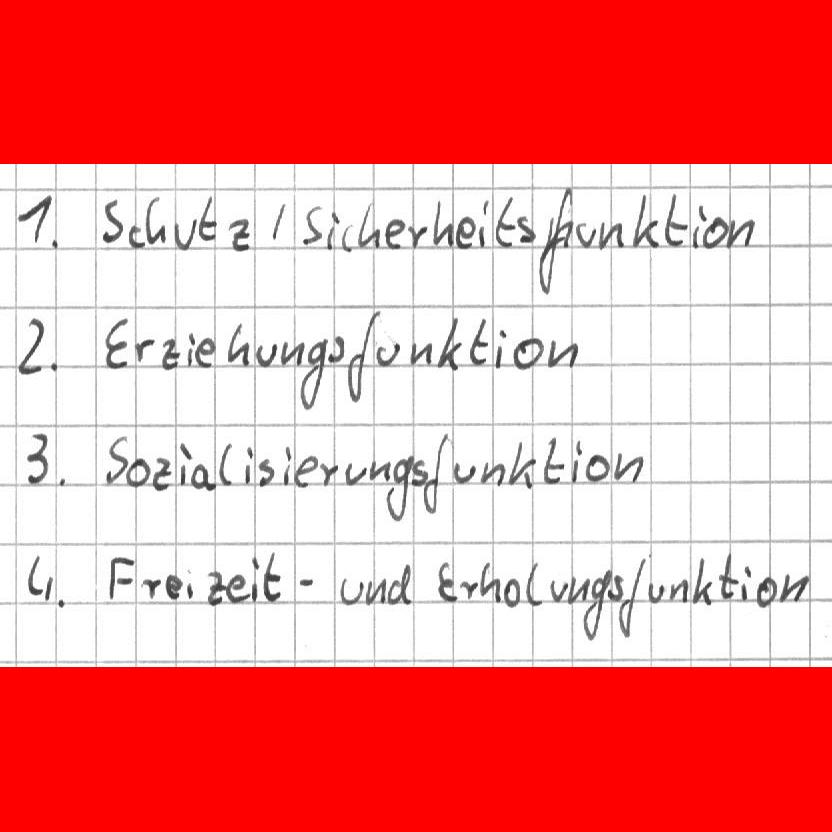 1. Schutz / Sicherheitsfunktion
2. Erziehungsfunktion
3. Sozialisierungsfunktion
4. Freizeit- und Erholungsfunktion